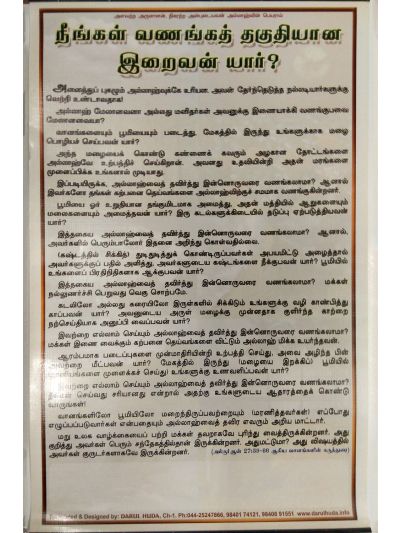 அளவற்ற அருளாளன், நிகரற்ற அன்புடையவன் அல்லாஹ்வின் பெயரால்
நீங்கள் வணங்கத் தகுதியான
இறைவன் யார்?
அனைத்துப் புகழும் அல்லாஹ்வுக்கே உரியன. அவன் தேர்ந்தெடுத்த நல்லடியார்களுக்கு
வெற்றி உண்டாவதாக!
அல்லாஹ் மேலானவனா அல்லது மனிதர்கள் அவனுக்கு இணையாக்கி வணங்குபவை
மேலானவையா?
வானங்களையும் பூமியையும் படைத்து, மேகத்தில் இருந்து உங்களுக்காக மழை
பொழிகச் செய்பவன் யார்?
அந்த மழையைக் கொண்டு கண்ணைக் கவரும் அழகான தோட்டங்களை
அல்லாஹ்வே உற்பத்திச் செய்கிறான். அவனது உதவியின்றி அதன் மரங்களை
முளைப்பிக்க உங்களால் முடியாது.
இப்படியிருக்க, அல்லாஹ்வைத் தவிர்த்து இன்னொருவரை வணங்கலாமா? ஆனால்
இவர்களோ தாங்கள் கற்பனை தெய்வங்களை அல்லாஹ்விற்குச் சமமாக வணங்குகின்றனர்.
பூமியை ஓர் உறுதியான தங்குமிடமாக அமைத்து, அதன் மத்தியில் ஆறுகளையும்
மலைகளையும் அமைத்தவன் யார்? இரு கடல்களுக்கிடையில் தடுப்பு ஏற்படுத்தியவன்
யார்?
இத்தகைய அல்லாஹ்வைத் தவிர்த்து இன்னொருவரை வணங்கலாமா? ஆனால்,
அவர்களில் பெரும்பாலோர் இதனை அறிந்து கொள்வதில்லை.
கஷ்டத்தில் சிக்கித் துடிதுடித்துக் கொண்டிருப்பவர்கள் அபயமிட்டு அழைத்தால்
அவர்களுக்குப் பதில் அளித்து, அவர்களுடைய கஷ்டங்களை நீக்குபவன் யார்? பூமியில்
உங்களைப் பிரதிநிதிகளாக ஆக்குபவன் யார்?
இத்தகைய அல்லாஹ்வைத் தவிர்த்து இன்னொருவரை வணங்கலாமா? மக்கள்
நல்லுணர்ச்சி பெறுவது வெகு சொற்பமே.
கடலிலோ அல்லது கரையிலோ இருள்களில் சிக்கிடும் உங்களுக்கு வழி காண்பித்து
காப்பவன் யார்? அவனுடைய அருள் மழைக்கு முன்னதாக குளிர்ந்த காற்றை
நற்செய்தியாக அனுப்பி வைப்பவன் யார்?
இவற்றை எல்லாம் செய்யும் அல்லாஹ்வைத் தவிர்த்து இன்னொருவரை வணங்கலாமா?
மக்கள் இணை வைக்கும் கற்பனை தெய்வங்களை விட்டும் அல்லாஹ் மிக்க உயர்ந்தவன்.
ஆரம்பமாக படைப்புகளை முன்மாதிரியின்றி உற்பத்தி செய்து, அவை அழிந்த பின்
அவற்றை மீட்பவன் யார்? மேகத்தில் இருந்து (மழையை இறக்கிப்) பூமியில்
(தானியங்களை முளைக்கச் செய்து) உங்களுக்கு உணவளிப்பவன் யார்?
இவற்றை எல்லாம் செய்யும் அல்லாஹ்வைத் தவிர்த்து இன்னொருவரை வணங்கலாமா?
நீங்கள் செய்வது சரியானது என்றால் அதற்கு உங்களுடைய ஆதாரத்தைக் கொண்டு
வாருங்கள்!
வானங்களிலோ பூமியிலோ மறைந்திருப்பவற்றையும் (மரணித்தவர்கள்) எப்போது
எழுப்பப்படுவார்கள் என்பதையும் அல்லாஹ்வைத் தவிர எவரும் அறிய மாட்டார்.
மறு உலக வாழ்க்கையைப் பற்றி மக்கள் தவறாகவே புரிந்து வைத்திருக்கின்றனர். அது
குறித்து அவர்கள் பெரும் சந்தேகத்தில்தான் இருக்கின்றனர். அதுமட்டுமா? அது விஷயத்தில்
அவர்கள் குருடர்களாகவே இருக்கின்றனர். (அல்குர்ஆன் 27:59-66 ஆகிய வசனங்களின் கருத்துரை)
& Designed by: DARUL HUDA, Ch-1. Ph:044-25247866, 98401 74121, 98406 91551 www.darulhuda.info